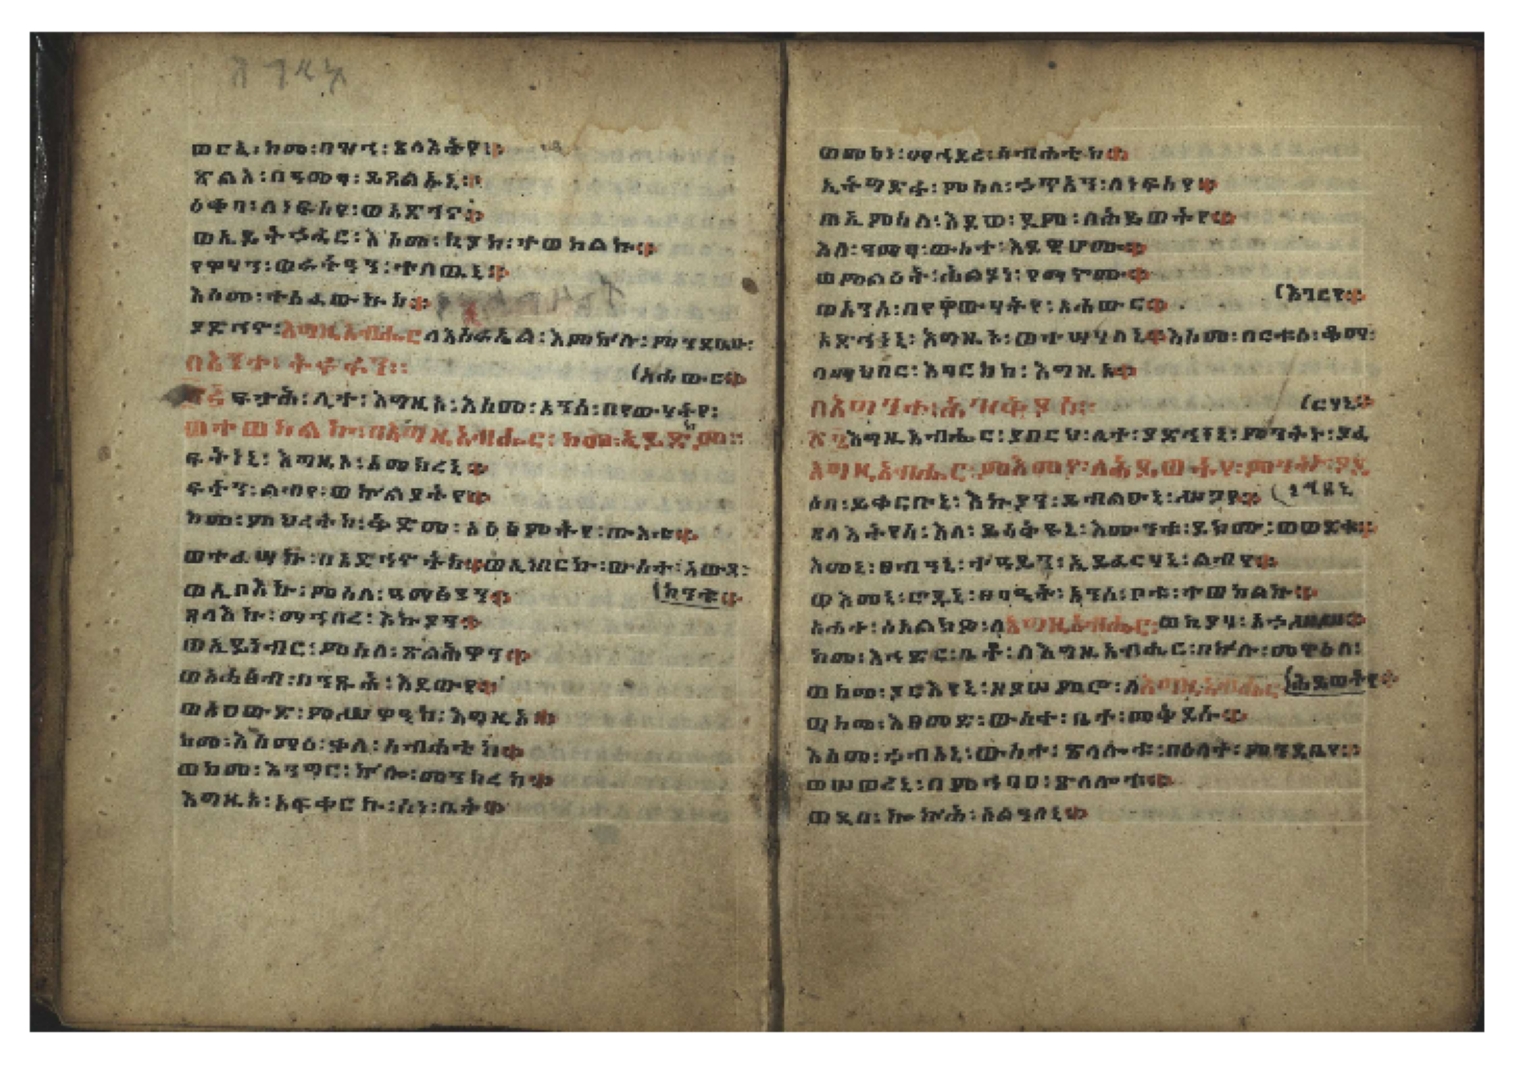 ወርኢ፡ከመ፡በዝኁ፡ጸላእትየ።
ጽልአ፡በዓመፃ፡ይጸልኡኒ።
ዕቀባ፡ለነፍስየ፡ወአድኅና።
ወኢይትኀፈር፡እስመ፡ኪያከ፡ተወከልኩ።
የዋሃን፡ወራትዓን፡ተለዉኒ።
እስመ፡ተሰፈውኩከ።
ያድኅኖ፡እግዚአብሔር፡ለእስራኤል፡እምኵሉ፡ምንዳቤሁ፡
በእንተ፡ትሩፋን። (አሐውር።
፳፭ ፍታሕ፡ሊተ፡እግዚኦ፡እስመ፡አንሰ፡በየውሃትየ፡
ወተወከልኩ፡በእግዚአብሔር፡ከመ፡ኢይድክም።
ፍትነኒ፡እግዚኦ፡አመክረኒ።
ፍትን፡ልብየ፡ወኵልያትየ።
ከመ፡ምሕረትከ፡ቅድመ፡አዕይንትየ፡ውእቱ።
ወተፈሣሕኩ፡በአድኅኖትከ።ወኢነበርኩ፡ውስተ፡ዐውደ፡
ወኢቦእኩ፡ምስለ፡ዓማፅያን። (ከንቱ።
ጸላእኩ፡ማኅበረ፡እኩያን።
ወኢይነብር፡ምስለ፡ጽልሕዋን።
ወአሐፅብ፡በንጹሕ፡እደውየ።
ወአዐውድ፡ምሥዋዒከ፡እግዚኦ።
ከመ፡እስማዕ፡ቃለ፡ስብሐቲከ።
ወከመ፡እንግር፡ኵሎ፡መንክረከ።
እግዚኦ፡አፍቀርኩ፡ስነ፡ቤትከ።
ወመካነ፡ማኅደረ፡ስብሐቲከ።
ኢትግድፋ፡ምስለ፡ኃጥአን፡ለነፍስየ።
ወኢምስለ፡እደወ፡ደም፡ለሕይወትየ።
እለ፡ዓመፃ፡ውስተ፡እደዊሆሙ።
ወምልዕት፡ሕልያነ፡የማኖሙ።
ወአንሰ፡በየዋውሃትየ፡አሐውር። (እግርየ።
አድኅነኒ፡እግዚኦ፡ወተሣሃለኒ።እስመ፡በርቱዕ፡ቆማ፡
በማኅበር፡እባርከከ፡እግዚኦ።
(ርሃኒ።
፳፮እግዚአብሔር፡ያበርህ፡ሊተ፡ያድኅነኒ፡ምንትኑ፡ያፈ
እግዚአብሔር፡ምእመና፡ለሕይወትየ፡ምንትኑ፡ያደ
ሶበ፡ይቀርቡኒ፡እኩያን፡ይብልዑኒ፡ሥጋየ። (ነግፀኒ
ጸላእትየሰ፡እለ፡ይዕቀዩኒ፡እሙንቱ፡ደክሙ፡ወወድቁ።
እመኒ፡ፀብአኒ፡ተዓይን፡ኢይፈርሃኒ፡ልብየ።
ወእመኒ፡ሮዱኒ፡ፀባዒት፡አንሰ፡ቦቱ፡ተወከልኩ።
አሐተ፡ሰአልክዎ፡ለእግዚአብሔር፡ወኪያሃ፡አኀሥሥ።
ከመ፡እኅድር፡ቤቶ፡ለእግዚአብሔር፡በኵሉ፡መዋዕለ፡
ወከመ፡ያርእየኒ፡ዘያሠምሮ፡ለእግዚአብሔር (ሕይወትየ።
ወከመ፡እፀመድ፡ውስተ፡ቤተ፡መቅደሱ።
እስመ፡ኀብአኒ፡ውስተ፡ጽላሎቱ፡በዕለተ፡ምንዳቤየ።
ወሠወረኒ፡በምኅባበ፡ጽላሎቱ።
ወዲበ፡ኰኵሕ፡አልዓለኒ።